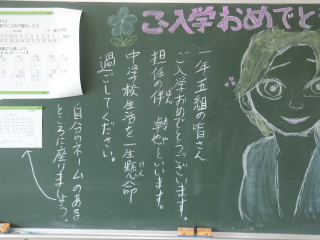 ご入学おめでと
一年五組の皆さん
ご入学おめでとうございます。
担任の伴 乾也といいます。
ばん
中学校生活を一生懸命
けん
過ごしてください。
自分のネームのある
ところに座りましょう。